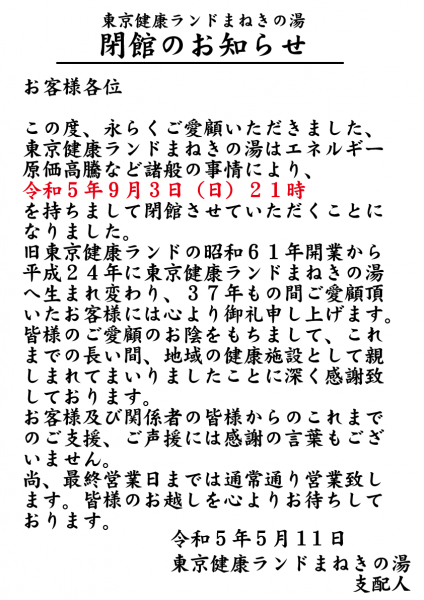 東京健康ランドまねきの湯
閉館のお知らせ
お客様各位
この度、永らくご愛顧いただきました、
東京健康ランドまねきの湯はエネルギー
原価高騰など諸般の事情により、
令和５年９月３日（日）２１時
を持ちまして閉館させていただくことに
なりました。
旧東京健康ランドの昭和６１年開業から
平成２４年に東京健康ランドまねきの湯
へ生まれ変わり、３７年もの間ご愛顧頂
いたお客様には心より御礼申し上げます。
皆様のご愛顧のお陰をもちまして、これ
までの長い間、地域の健康施設として親
しまれてまいりましたことに深く感謝致
しております。
お客様及び関係者の皆様からのこれまで
のご支援、ご声援には感謝の言葉もござ
いません。
尚、最終営業日までは通常通り営業致し
ます。皆様のお越しを心よりお待ちして
おります。
令和５年５月１１日
東京健康ランドまねきの湯
支配人